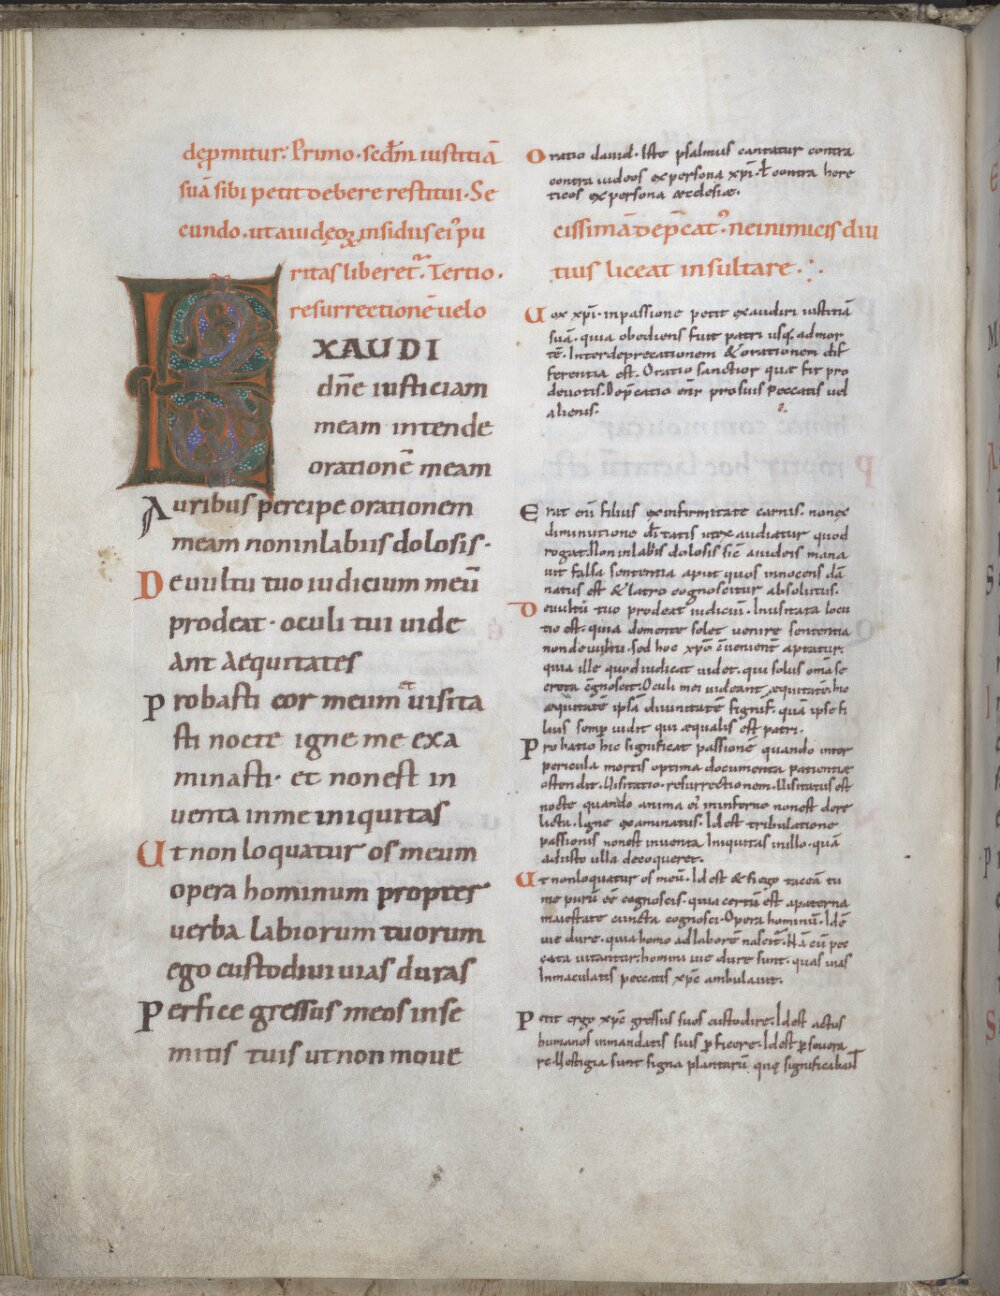 dęp̄mitur. Primo. sedm̄ iustitiā
suā sibi petit debere restitui. Se
cundo. ut a iudęoꝝ insidiis ei' pu
ritas liberet̄. Tertio.
resurrectionē uelo
cissimā dep̄cat'. ne inimicis diu
tius liceat insultare.
EXAUDI
dn̄e iusticiam
meam intende
orationē meam
Auribus percipe orationem
meam non in labiis dolosis.
De uultu tuo iudicium meū
prodeat. oculi tui uide
ant aequitates
Probasti cor meum et uisita
sti nocte igne me exa
minasti. et non est in
uenta in me iniquitas
Ut non loquatur os meum
opera hominum propter
uerba labiorum tuorum
ego custodiui uias duras
Perfice gressus meos in se
mitis tuis ut non moue
Oratio dauid. Iste psalmus cantatur contra
contra iudeos ex persona xp̄i. ł contra here
ticos ex persona æcclesiæ.
Uox xp̄i. in passione petit exaudiri iustitiā
suā. quia obediens fuit patri usq; ad mor
tē. Inter deprecationem & orationem dif
ferentia est. Oratio sanctior quæ fit pro
deuotis. Dep̄catio enī pro suis peccatis uel
alienis.
Erat enī filius ex infirmitate carnis. non ex
diminutione d̄itatis ut exaudiatur quod
rogat. Non in labiis dolosis sic̄ a iudeis mana
uit falsa sententia aput quos innocens dā
natus est & latro cognoscitur absolutus.
De uultu tuo prodeat iudiciū. Inusitata locu
tio est. quia de mente solet uenire sententia
non de uultu. sed hoc xp̄o c̄uenienter aptatur.
quia ille quod iudicat uidet. qui solus om̄a se
creta c̄gnoscit. Oculi mei uideant æquitatē. hic
æquitatē ipsā diuinitatē signif. quā ipse fi
lius semp uidit qui æqualis est patri.
Probatio hic significat passionē quando inter
pericula mortis optima documenta patientiæ
ostendit. Uisitatio. resurrectionem. Uisitatus est
nocte quando anima ei in inferno non est dere
licta. Igne examinatus. Id est tribulatione
passionis non est inuenta iniquitas in illo. quā
adusto ulla decoqueret.
Ut non loquatur os meū. Id est & si ego taceā tu
me purū ēē cognoscis. quia certū est a paterna
maiestate cuncta cognosci. Opera hominū. Id ē
uie dure. quia homo ad laborē nascit̄. Nā cū pec
cata uitantur. homini uie dure sunt. quas uias
Inmaculatis peccatis xp̄c ambulauit.
Petit ergo xp̄c gressus suos custodire. Id est actus
humanos in mandatis suis pficere. Id est pseuera
re. Uestigia sunt signa plantarū quę significabant